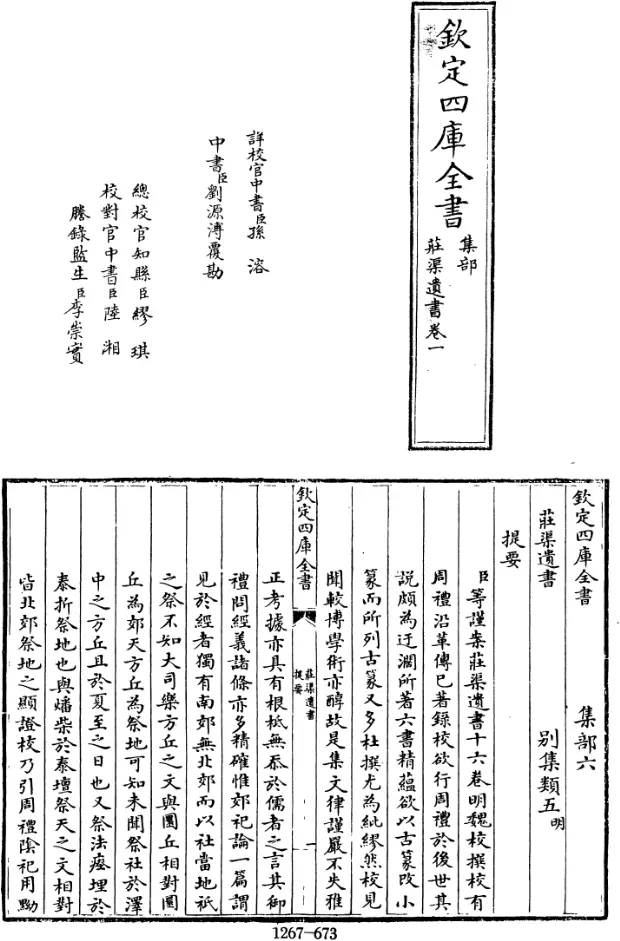 欽定四庫全書
集部
莊渠遺書卷一
詳校官中書臣孫溶
中書臣劉源溥覆勘
總校官知縣臣繆琪
校對官中書臣陸湘
謄錄監生臣李崇實
欽定四庫全書 集部六
莊渠遺書 別集類五明
提要
臣等謹案莊渠遺書十六卷明魏校撰校有
周禮沿革傳已著錄校欲行周禮於後世其
說頗為迂濶所著六書精藴欲以古篆改小
篆而所列古篆又多杜撰尤為紕繆然校見
聞較博學術亦醇故是集文律謹嚴不失雅
欽定四庫全書
莊渠遺書
提要
一
正考據亦具有根柢無忝於儒者之言其御
禮問經義諸條亦多精確惟郊祀論一篇謂
見於經者獨有南郊無北郊而以社當地祇
之祭不知大司樂方丘之文與圜丘相對圜
丘為郊天方丘為祭地可知未聞祭社於澤
中之方丘且於夏至之日也又祭法瘞埋於
泰折祭地也與燔柴於泰壇祭天之文相對
皆北郊祭地之顯證校乃引周禮陰祀用黝
1267-673